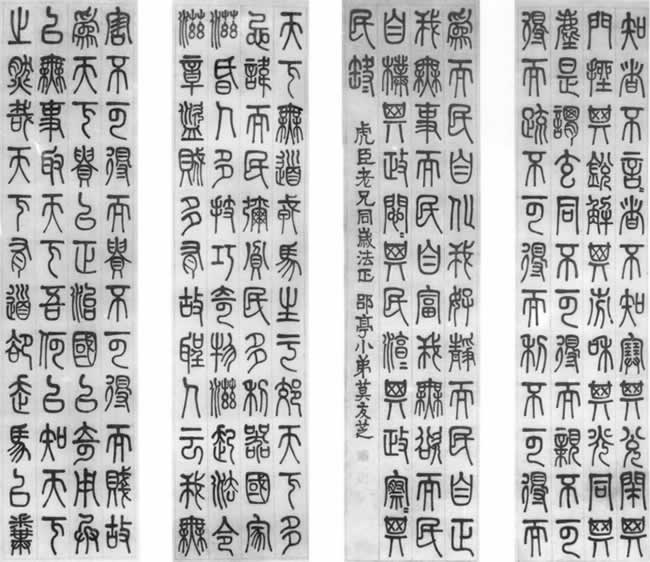 知者不言=者不知塞其兌閉其
門挫其銳解其紛和其光同其
塵是謂玄同不可得而親不可
得而疏不可得而利不可得而
害不可得而貴不可得而賤故
爲天下貴以正治國以奇用兵
以無事取天下吾何以知天下
之然哉天下有道卻走馬以糞
天下無道戎馬生于郊天下多
忌諱而民彌貧民多利器國家
滋昏人多技巧奇物滋起法令
滋章盜賊多有故聖人云我無
爲而民自化我好靜而民自正
我無事而民自富我無欲而民
自樸其政悶=其民湻=其政察=其
民缺
虎臣老兄同歲法正 郘亭小弟莫友芝